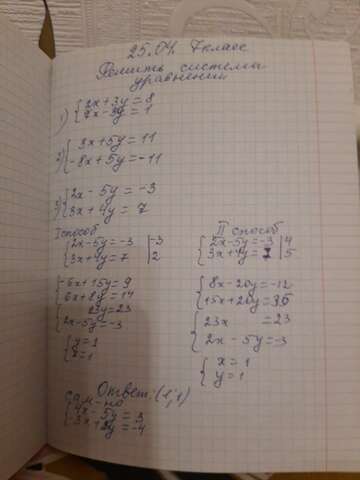 25.04. 7 класс
Решить системы
уравнений
1) { 2x + 3y = 8
7x - 3y = 1
2) { 3x + 5y = 11
-8x + 5y = -11
3) { 2x - 5y = -3
3x + 4y = 7
I способ
{ 2x - 5y = -3 | -3
3x + 4y = 7 | 2
{ -6x + 15y = 9
6x + 8y = 14
{ 23y = 23
2x - 5y = -3
{ y = 1
x = 1
II способ
{ 2x - 5y = -3 | 4
3x + 4y = 7 | 5
{ 8x - 20y = -12
15x + 20y = 35
{ 23x = 23
2x - 5y = -3
{ x = 1
y = 1
Ответ: (1; 1)
сам-но
{ 4x - 5y = 3
-3x + 2y = -4